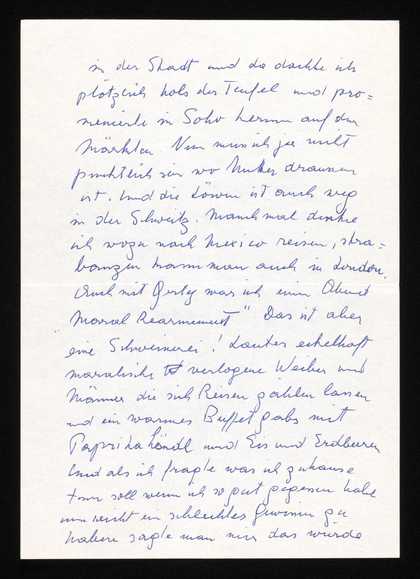 in der Stadt und da dachte ich
plötzlich hols der Teufel und pro=
menierte in Soho herum auf den
Märkten. Nun muss ich ja nicht
pünktlich sein wo Mutter draussen
ist. Und die Löwin ist auch weg
in der Schweiz. Manchmal denke
ich wozu nach Mexico reisen, stra=
banzen kann man auch in London.
Auch mit war ich einen Abend
Moral Rearmement" Das ist aber
eine Schweinerei! Lauter ekelhaft
moralisch verlogene Weiber und
Männer die sich Reisen zahlen lassen
und ein warmes Buffet gabs mit
Paprika händl und Eis und Erdbeeren
Und als ich fragte was ich zuhause
tun soll wenn ich so gut gegessen habe
um nicht ein schlechtes Gewissen zu
haben sagte man mir das würde